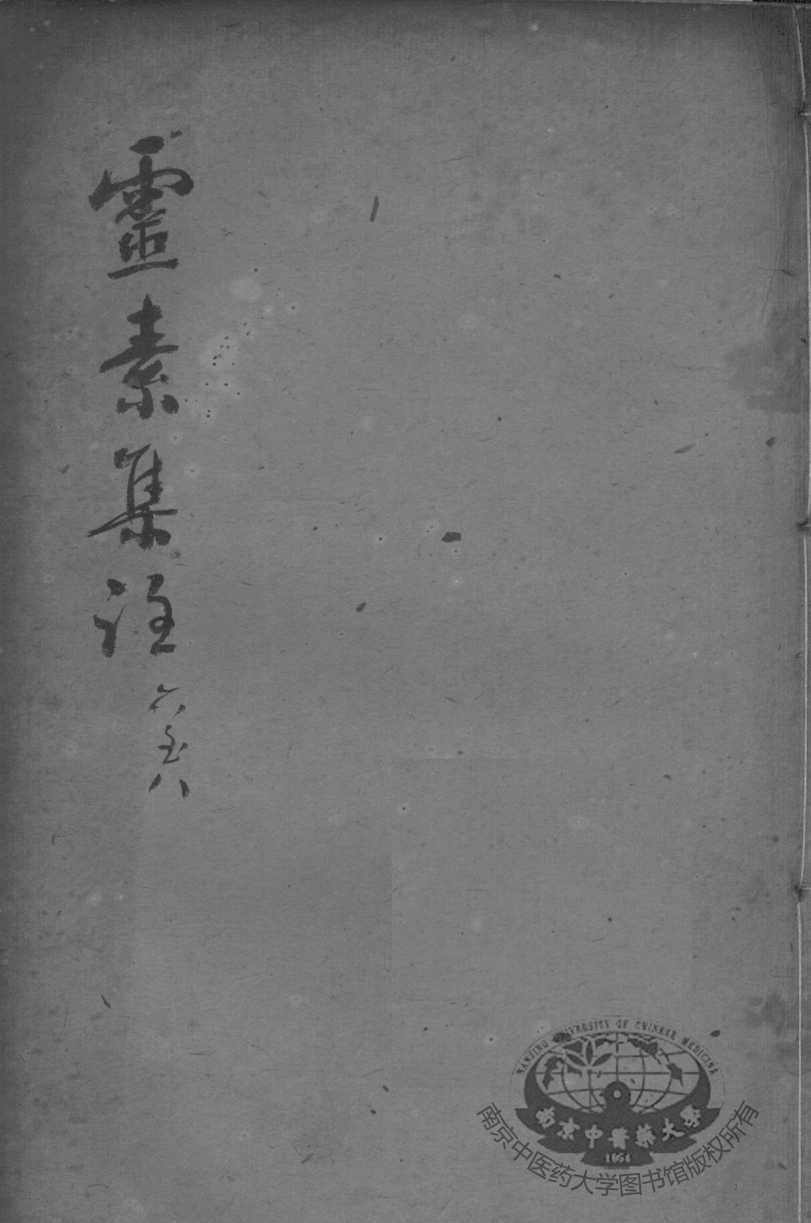 靈素集註
六至八
NANJING UNIVERSITY OF CHINESE MEDICINE
南京中醫藥大學
1954
南京中医药大学图书馆版权所有